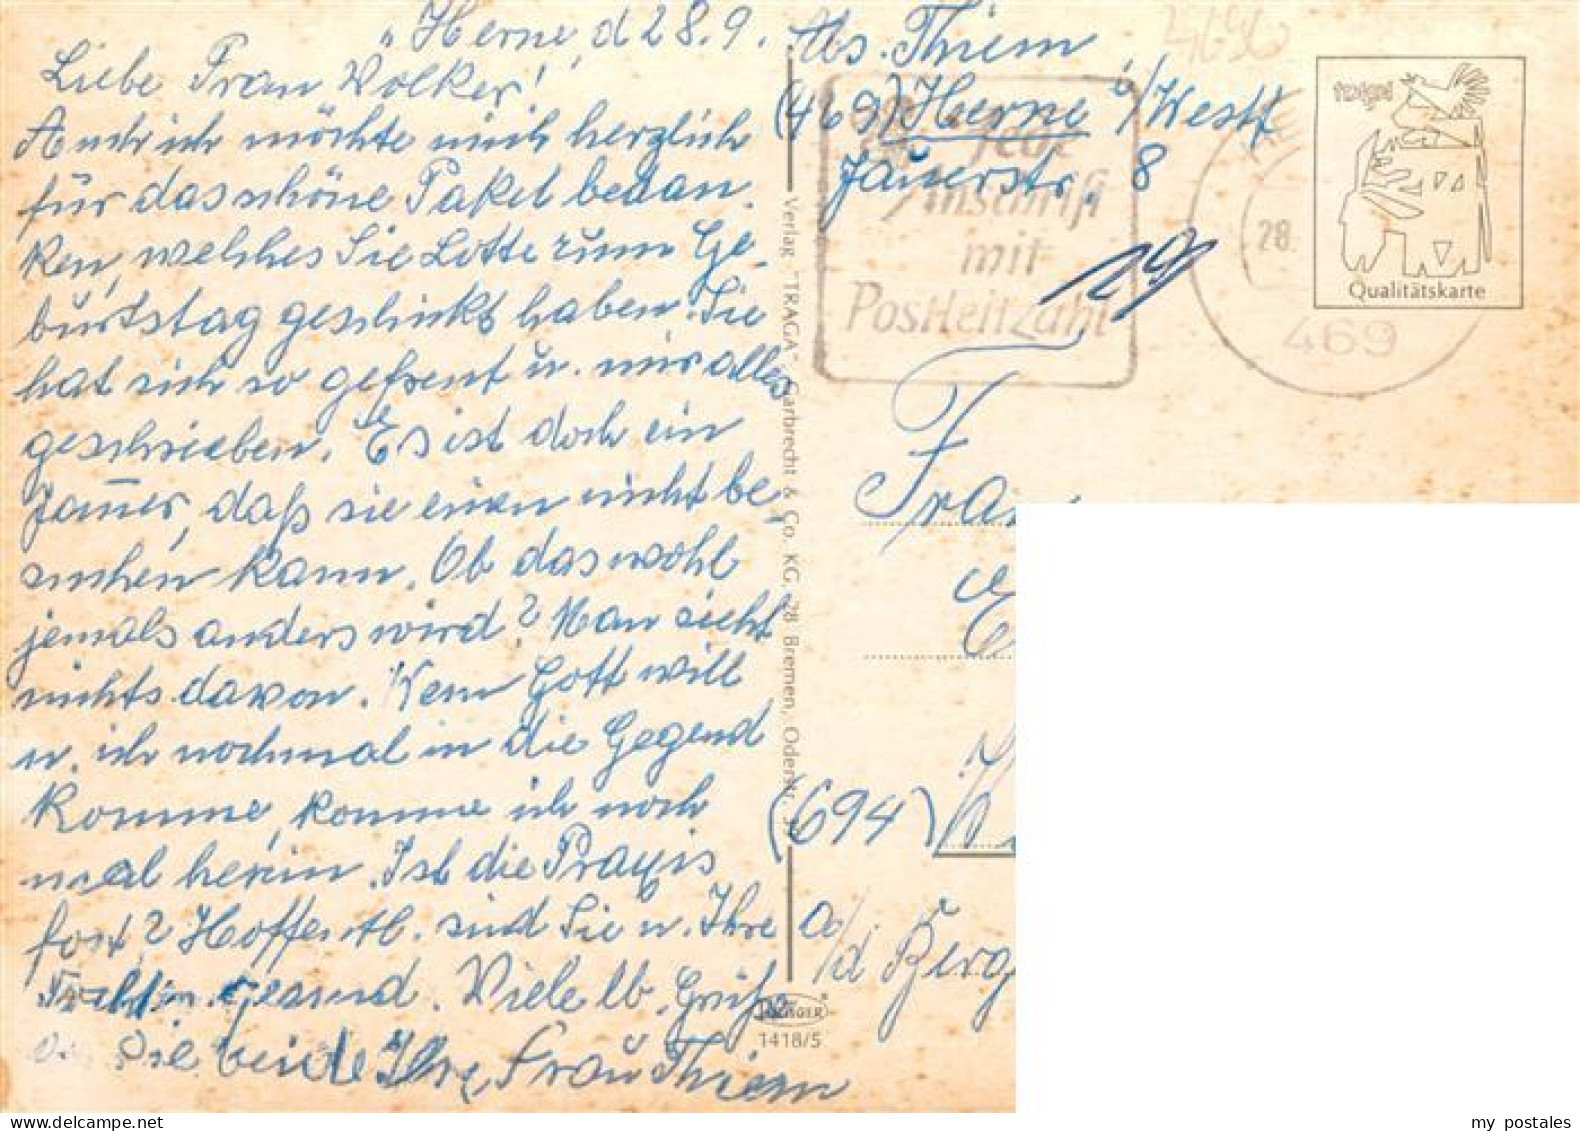 Herne, d 28. 9.
Liebe Frau Wolker!
Auch ich möchte mich herzlich
für das schöne Paket bedan-
ken, welches Sie Lotte zum Ge-
burtstag geschickt haben. Sie
hat sich so gefreut u. mir alles
geschrieben. Es ist doch ein
Jammer, daß sie einen nicht be-
suchen kann. Ob das wohl
jemals anders wird? Man sieht
nichts davon. Wenn Gott will
u. ich nochmal in die Gegend
komme, komme ich noch
mal herein. Ist die Praxis
fort? Hoffentl. sind Sie u. Ihre
gesund. Viele lb. Grüße
Sie beide Ihre Frau Thiem
Verlag "TRAGA" Garbrecht & Co. KG, 28 Bremen, Oderstr.
KRÜGER
1418/5
Abs. Thiem
(469) Herne i/Westf
Jauerstr. 8
19
Jede
Anschrift
mit
Postleitzahl
28.
469
Qualitätskarte
(694)
a/d Berg
my postales